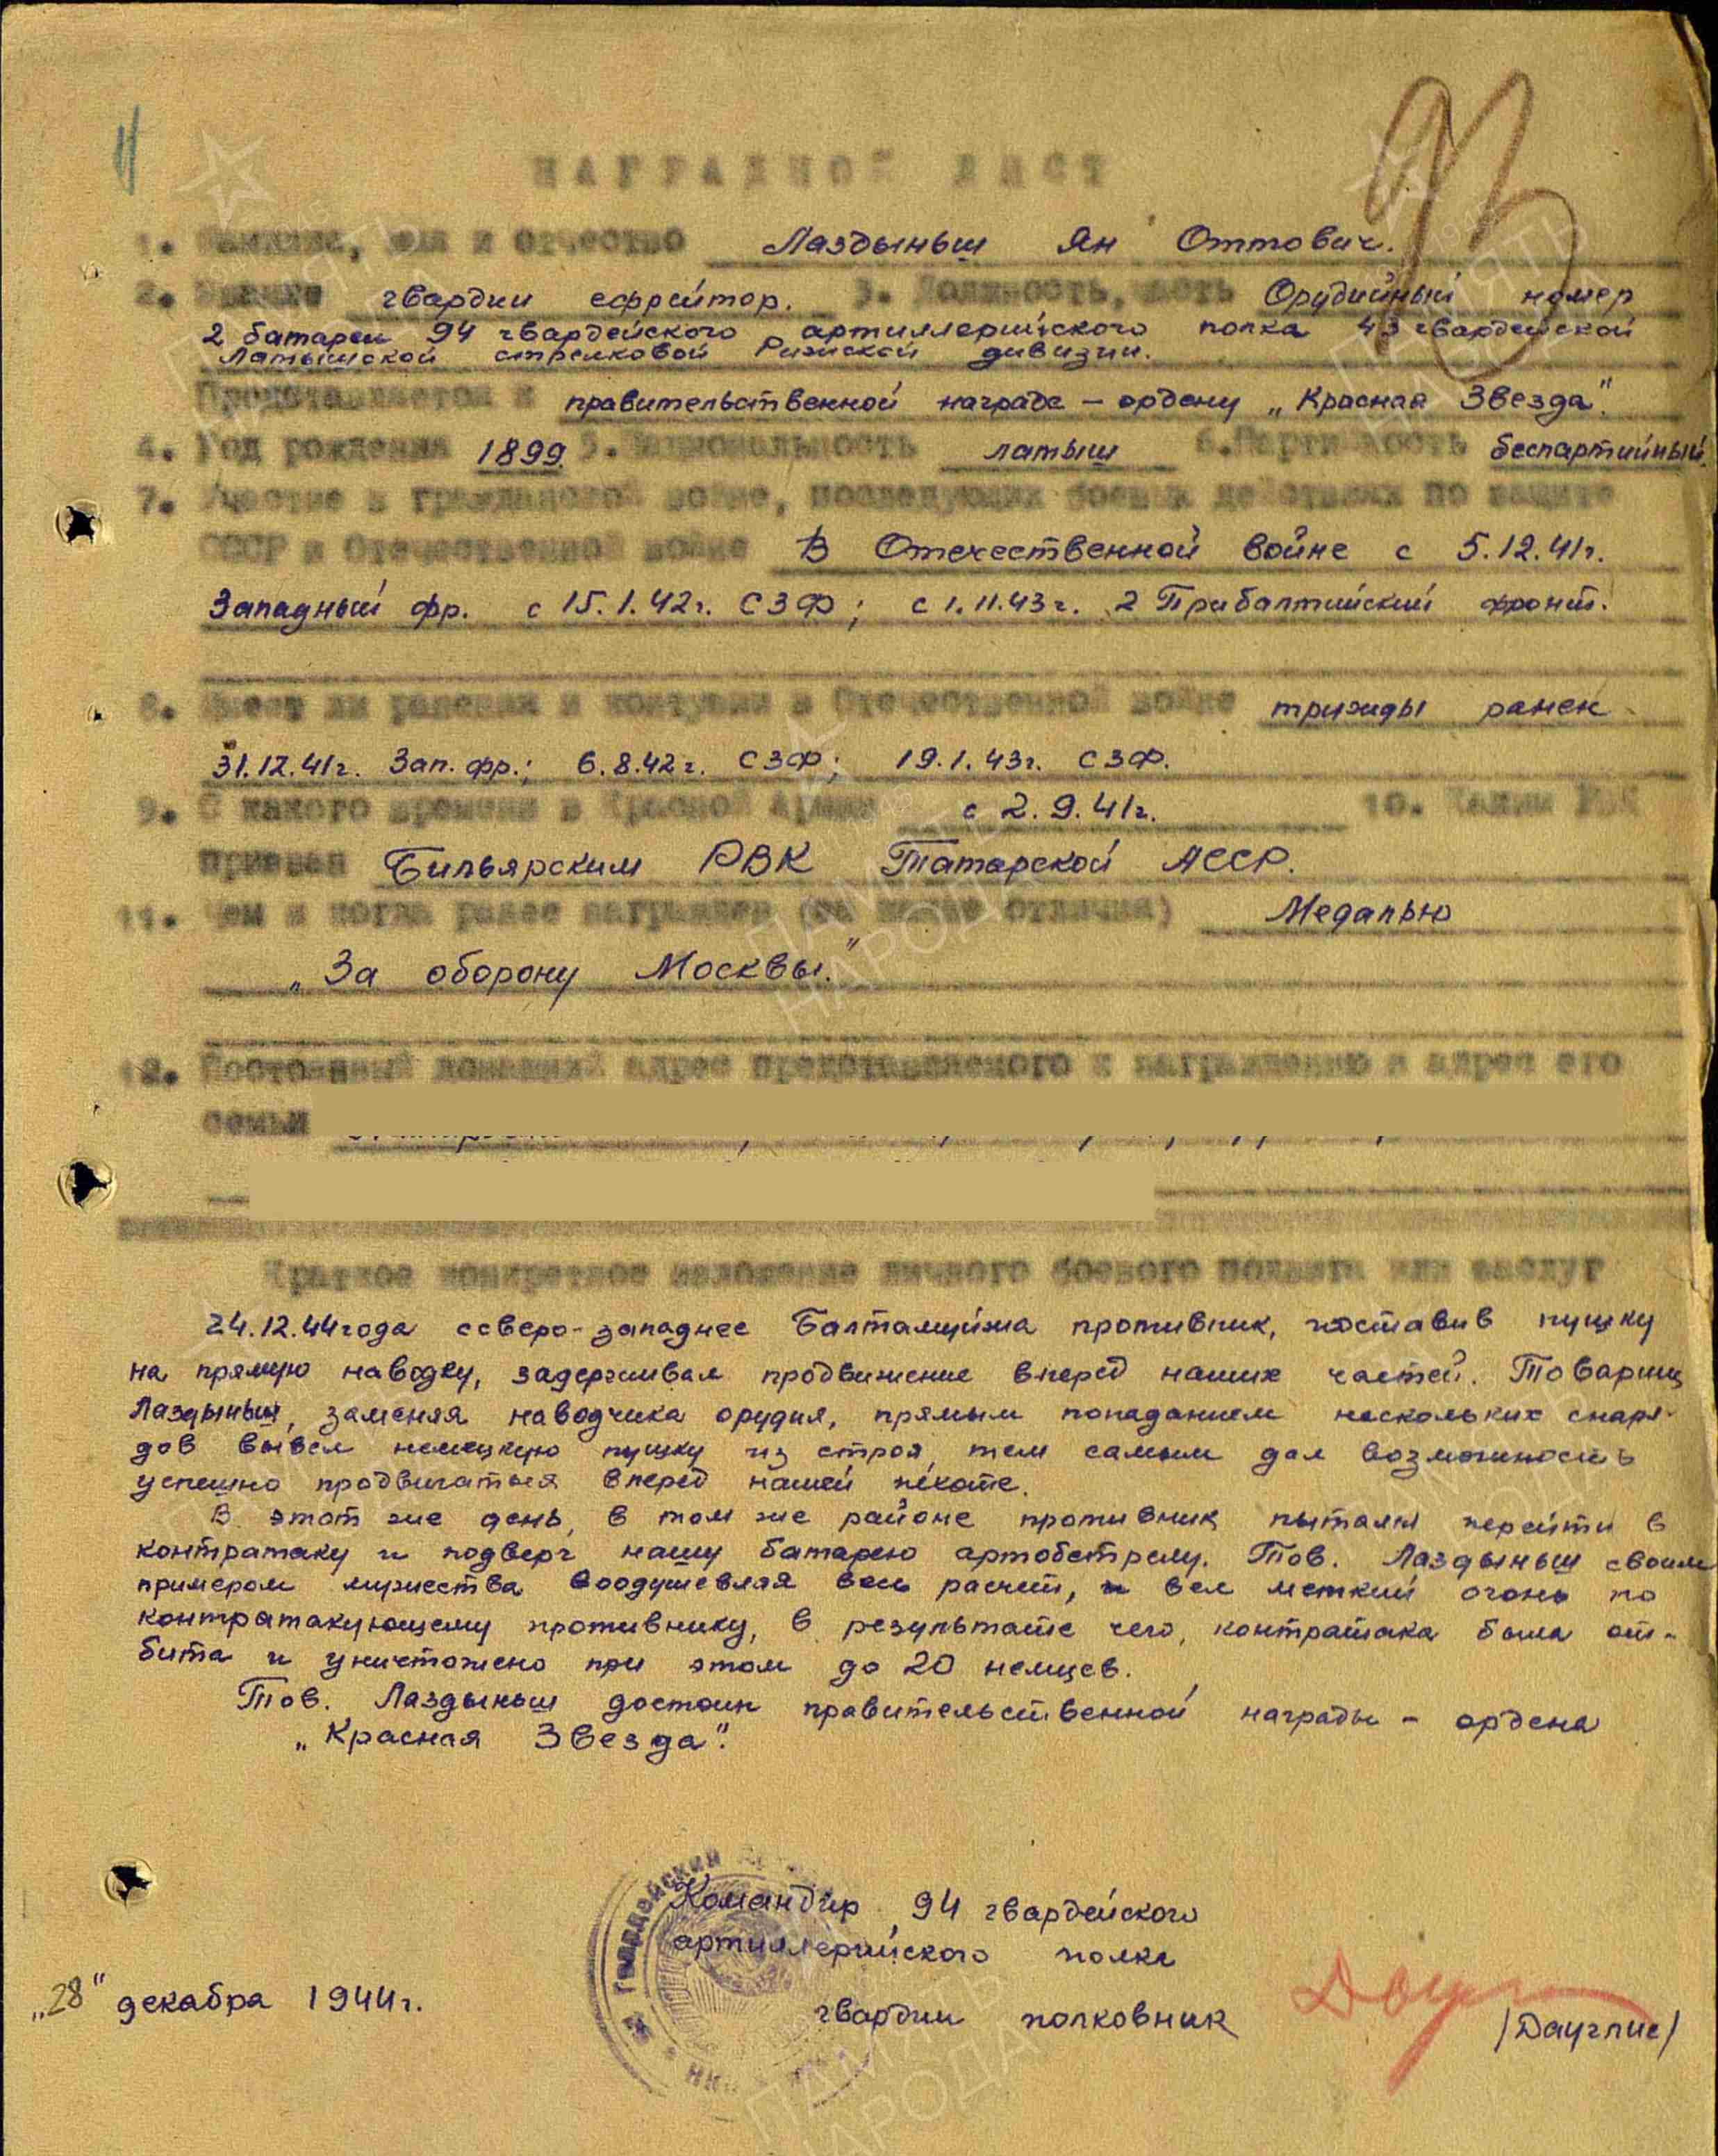 93
НАГРАДНОЙ ЛИСТ
1. Фамилия, имя и отчество Лаздыньш Ян Оттович.
2. Звание гвардии ефрейтор. 3. Должность, часть Орудийный номер
2 батареи 94 гвардейского артиллерийского полка 43 гвардейской
Латышской стрелковой Рижской дивизии.
Представляется к правительственной награде – ордену „Красная Звезда".
4. Год рождения 1899. 5. Национальность латыш 6. Партийность беспартийный.
7. Участие в гражданской войне, последующих боевых действиях по защите
СССР и Отечественной войне В Отечественной войне с 5.12.41г.
Западный фр. с 15.1.42г. СЗФ; с 1.11.43г. 2 Прибалтийский фронт.
8. Имеет ли ранения и контузии в Отечественной войне трижды ранен
31.12.41г. Зап. фр.; 6.8.42г. СЗФ; 19.1.43г. СЗФ.
9. С какого времени в Красной Армии с 2.9.41г. 10. Каким РВК
призван Бильярским РВК Татарской АССР.
11. Чем и когда ранее награжден (за какие отличия) Медалью
„За оборону Москвы."
12. Постоянный домашний адрес представляемого к награждению и адрес его
семьи
Краткое конкретное изложение личного боевого подвига или заслуг
24.12.44 года северо-западнее Балтамуйжа противник, поставив пушку
на прямую наводку, задерживал продвижение вперед наших частей. Товарищ
Лаздыньш, заменяя наводчика орудия, прямым попаданием нескольких снаря-
дов вывел немецкую пушку из строя, тем самым дал возможность
успешно продвигаться вперед нашей пехоте.
В этот же день, в том же районе противник пытался перейти в
контратаку и подверг нашу батарею артобстрелу. Тов. Лаздыньш своим
примером мужества воодушевляя весь расчет, и вел меткий огонь по
контратакующему противнику, в результате чего, контратака была от-
бита и уничтожено при этом до 20 немцев.
Тов. Лаздыньш достоин правительственной награды – ордена
„Красная Звезда".
Командир 94 гвардейского
артиллерийского полка
„28" декабря 1944г.
гвардии полковник
/Дауглис/